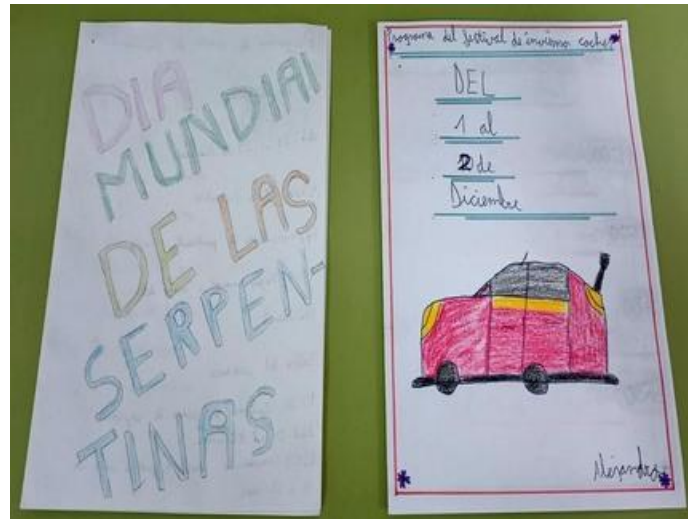 DIA
MUNDIAl
DE LAS
SERPEN-
TINAS
Programa del festival de invierno coches
DEL
1 al
2 de
Diciembre
Alejandro